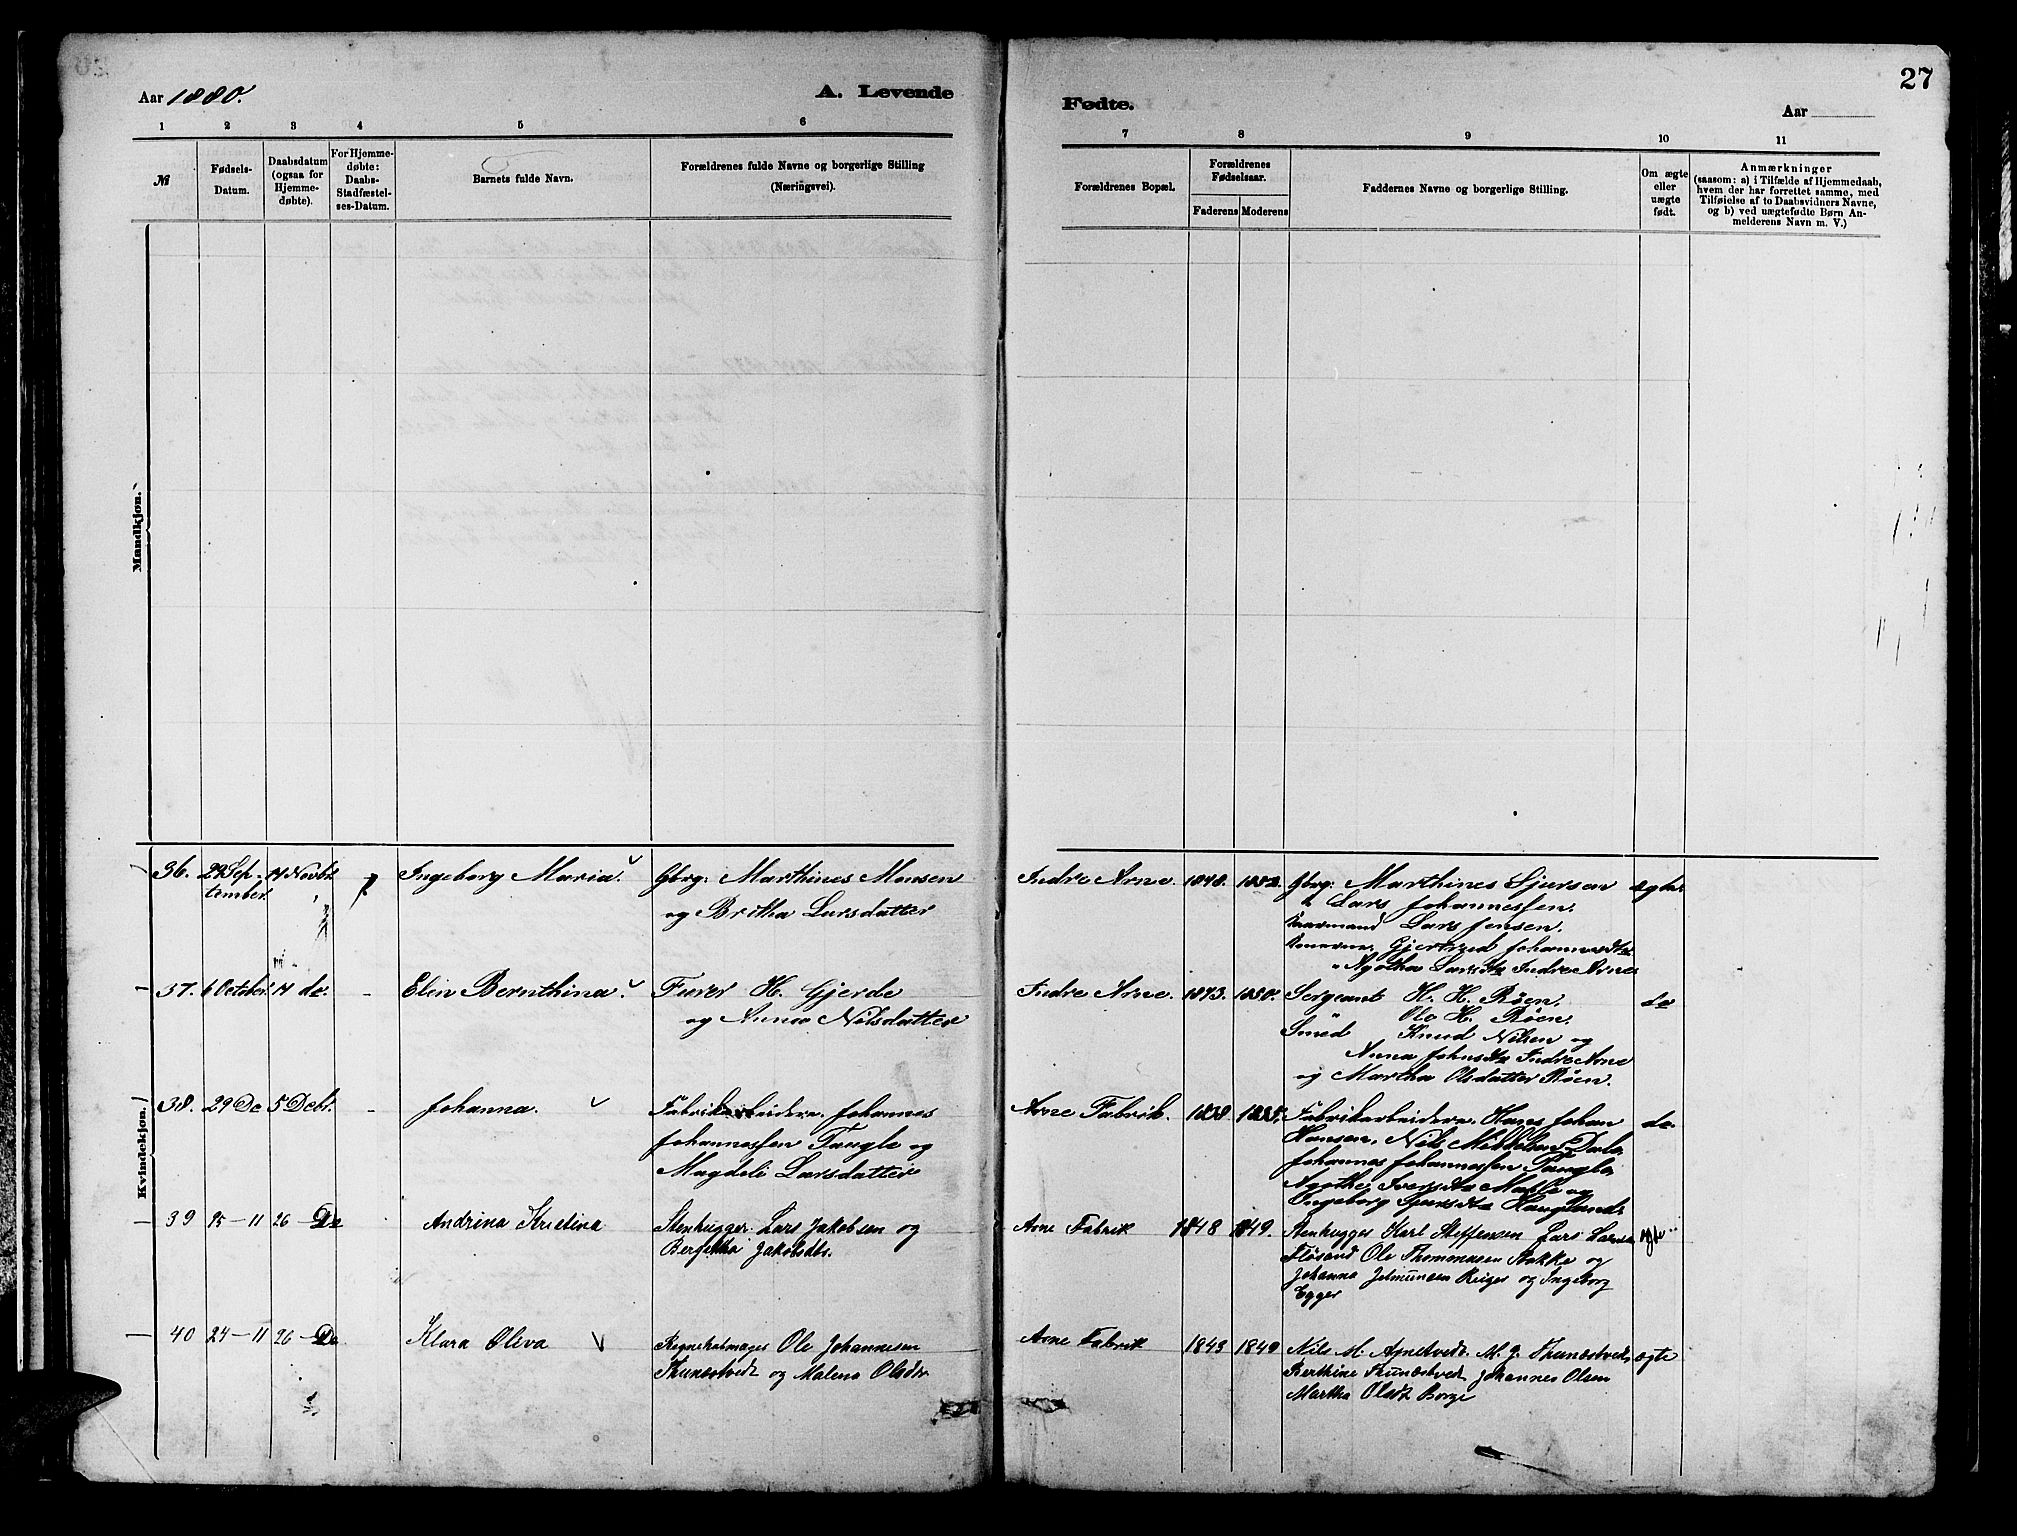 27
Aar 1880.
A. Levende
Fødte.
Aar
1 2 3 4 5 6 7 8 9 10 11
№
Fødsels-
Datum.
Daabsdatum
(ogsaa for
Hjemme-
døbte).
For Hjemme-
døbte:
Daabs-
Stadfæstel-
ses-Datum.
Barnets fulde Navn.
Forældrenes fulde Navne og borgerlige Stilling
(Næringsvei).
Forældrenes Bopæl.
Forældrenes
Fødselsaar.
Faderens Moderens
Faddernes Navne og borgerlige Stilling.
Om ægte
eller
uægte
født.
Anmærkninger
(saasom: a) i Tilfælde af Hjemmedaab,
hvem der har forrettet samme, med
Tilføielse af to Daabsvidners Navne,
og b) ved uægtefødte Børn An-
melderens Navn m. V.)
Mandkjøn.
Kvindekjøn.
36. 29 Sep- 14 Novbr Ingeborg Maria. Gbrg: Marthines Monsen
tember
og Britha Larsdatter
Indre Arne. 1848. Gbrg: Marthines Sjursen ægte
Lars Johannessen.
Lars Jensen.
Gjertrud Johannesdtr
Agatha Larsdtr Indre Arne
37. 6 October. 14 do. - Elin Bernthina. Furer H. Gjerde
og Anna Nilsdatter
Indre Arne. 1843. 1850. Sergeant H. H. Røen. do
Ole H. Røen.
Smed Knud Nilsen og
Anna Johnsdtr Indre Arne
og Martha Olsdatter Røen.
38. 29 Do 5 Debr. - Johanna. Fabrikarbeider. Johannes
Johannessen Tangle og
Magdeli Larsdatter
Arne Fabrik. 1838 Fabrikarbeidere. Hans Johan do.
Hansen, Nils
Johannes Johannessen Tangle
Agathe Iversdtr
Ingeborg Sjursdtr Haugland
39 15-11 26-De Andrina Kristina Stenhugger. Lars Jakobsen og
Bergetha Jakobsdtr.
Arne Fabrik 1848 1849. Stenhugger Karl Steffensen Lars Larsen
Flesand Ole Thommasen Stokke og
Johanna og Ingeborg
Egger
40 24-11 26-De Klara Oliva Regnskabsfører Ole Johannesen
Thunestvedt og Malena Olsdtr
Arne Fabrik 1843 1849 Nils M. Arnetvedt. M. J. Thunestvedt, ægte
Berthine Thunestvedt Johannes Olsen
Martha Olsdt Borge